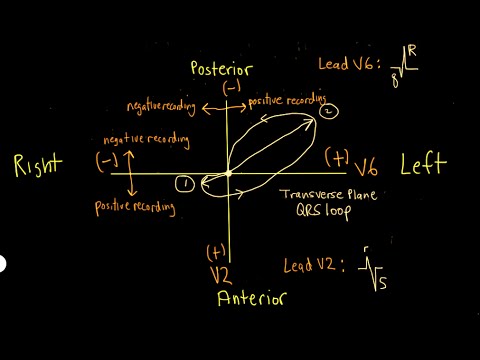 Lead V6:
R
q
Posterior
(-)
negative recording
positive recording
2
negative recording
Right
(-)
(+)
V6
Left
positive recording
1
Transverse Plane
QRS loop
(+)
V2
Lead V2:
r
S
Anterior